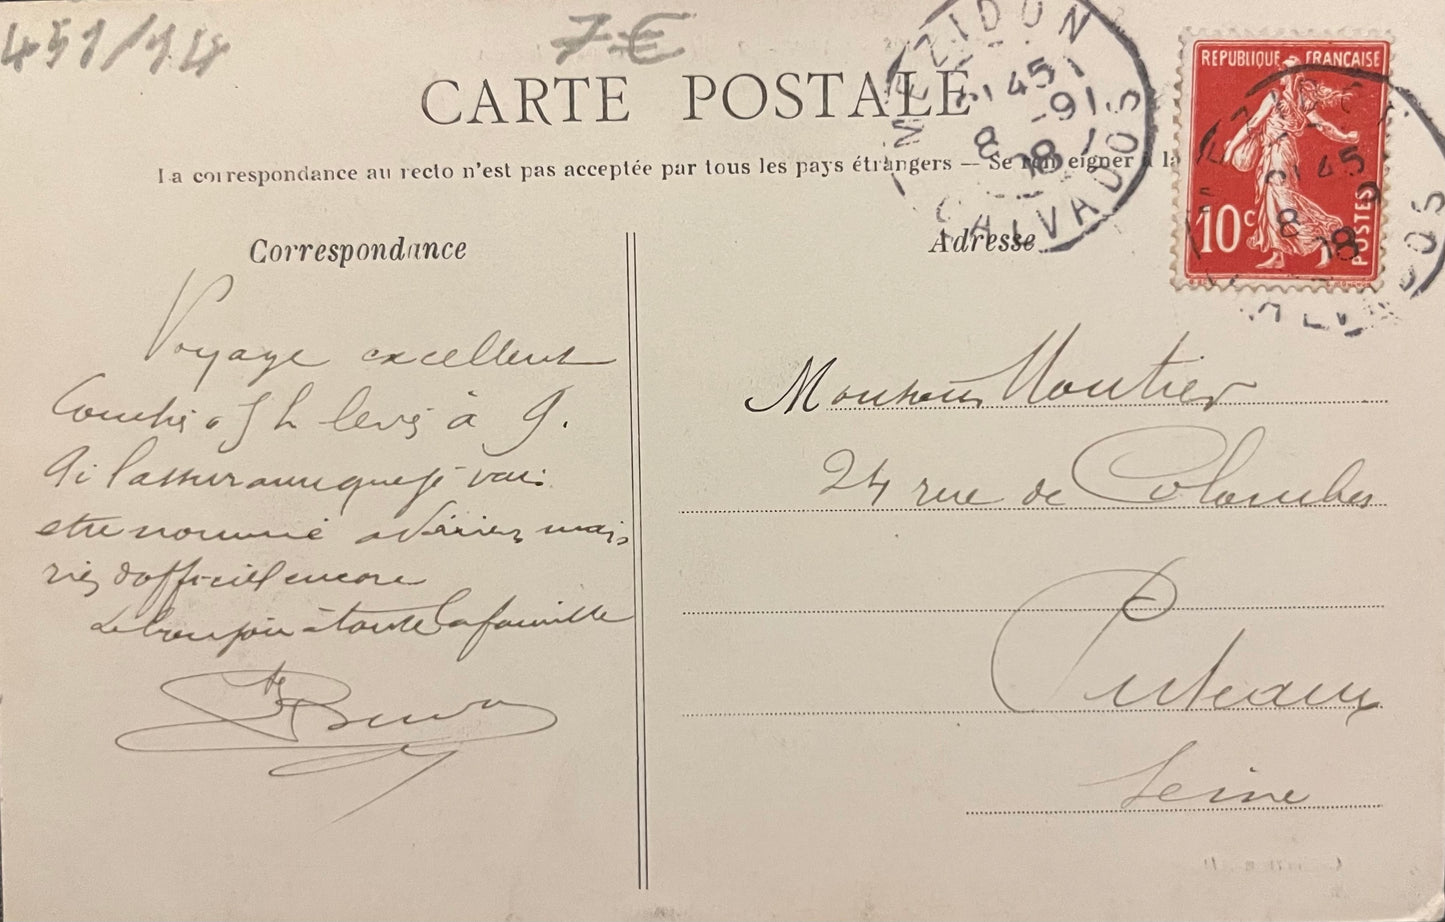 451/14
7€
CARTE POSTALE
La correspondance au recto n'est pas acceptée par tous les pays étrangers — Se renseigner à la
Correspondance
Adresse
MEZIDON
CALVADOS
45
8 - 9
REPUBLIQUE FRANÇAISE
10c
POSTES
Voyage excellent
Couché 5 h levé à 9.
Ai l'assurance que je vais
etre nommé mais
rien d'officiel encore
Le bonjour à toute la famille
Monsieur Moutier
24 rue de Colombes
Puteaux
Seine